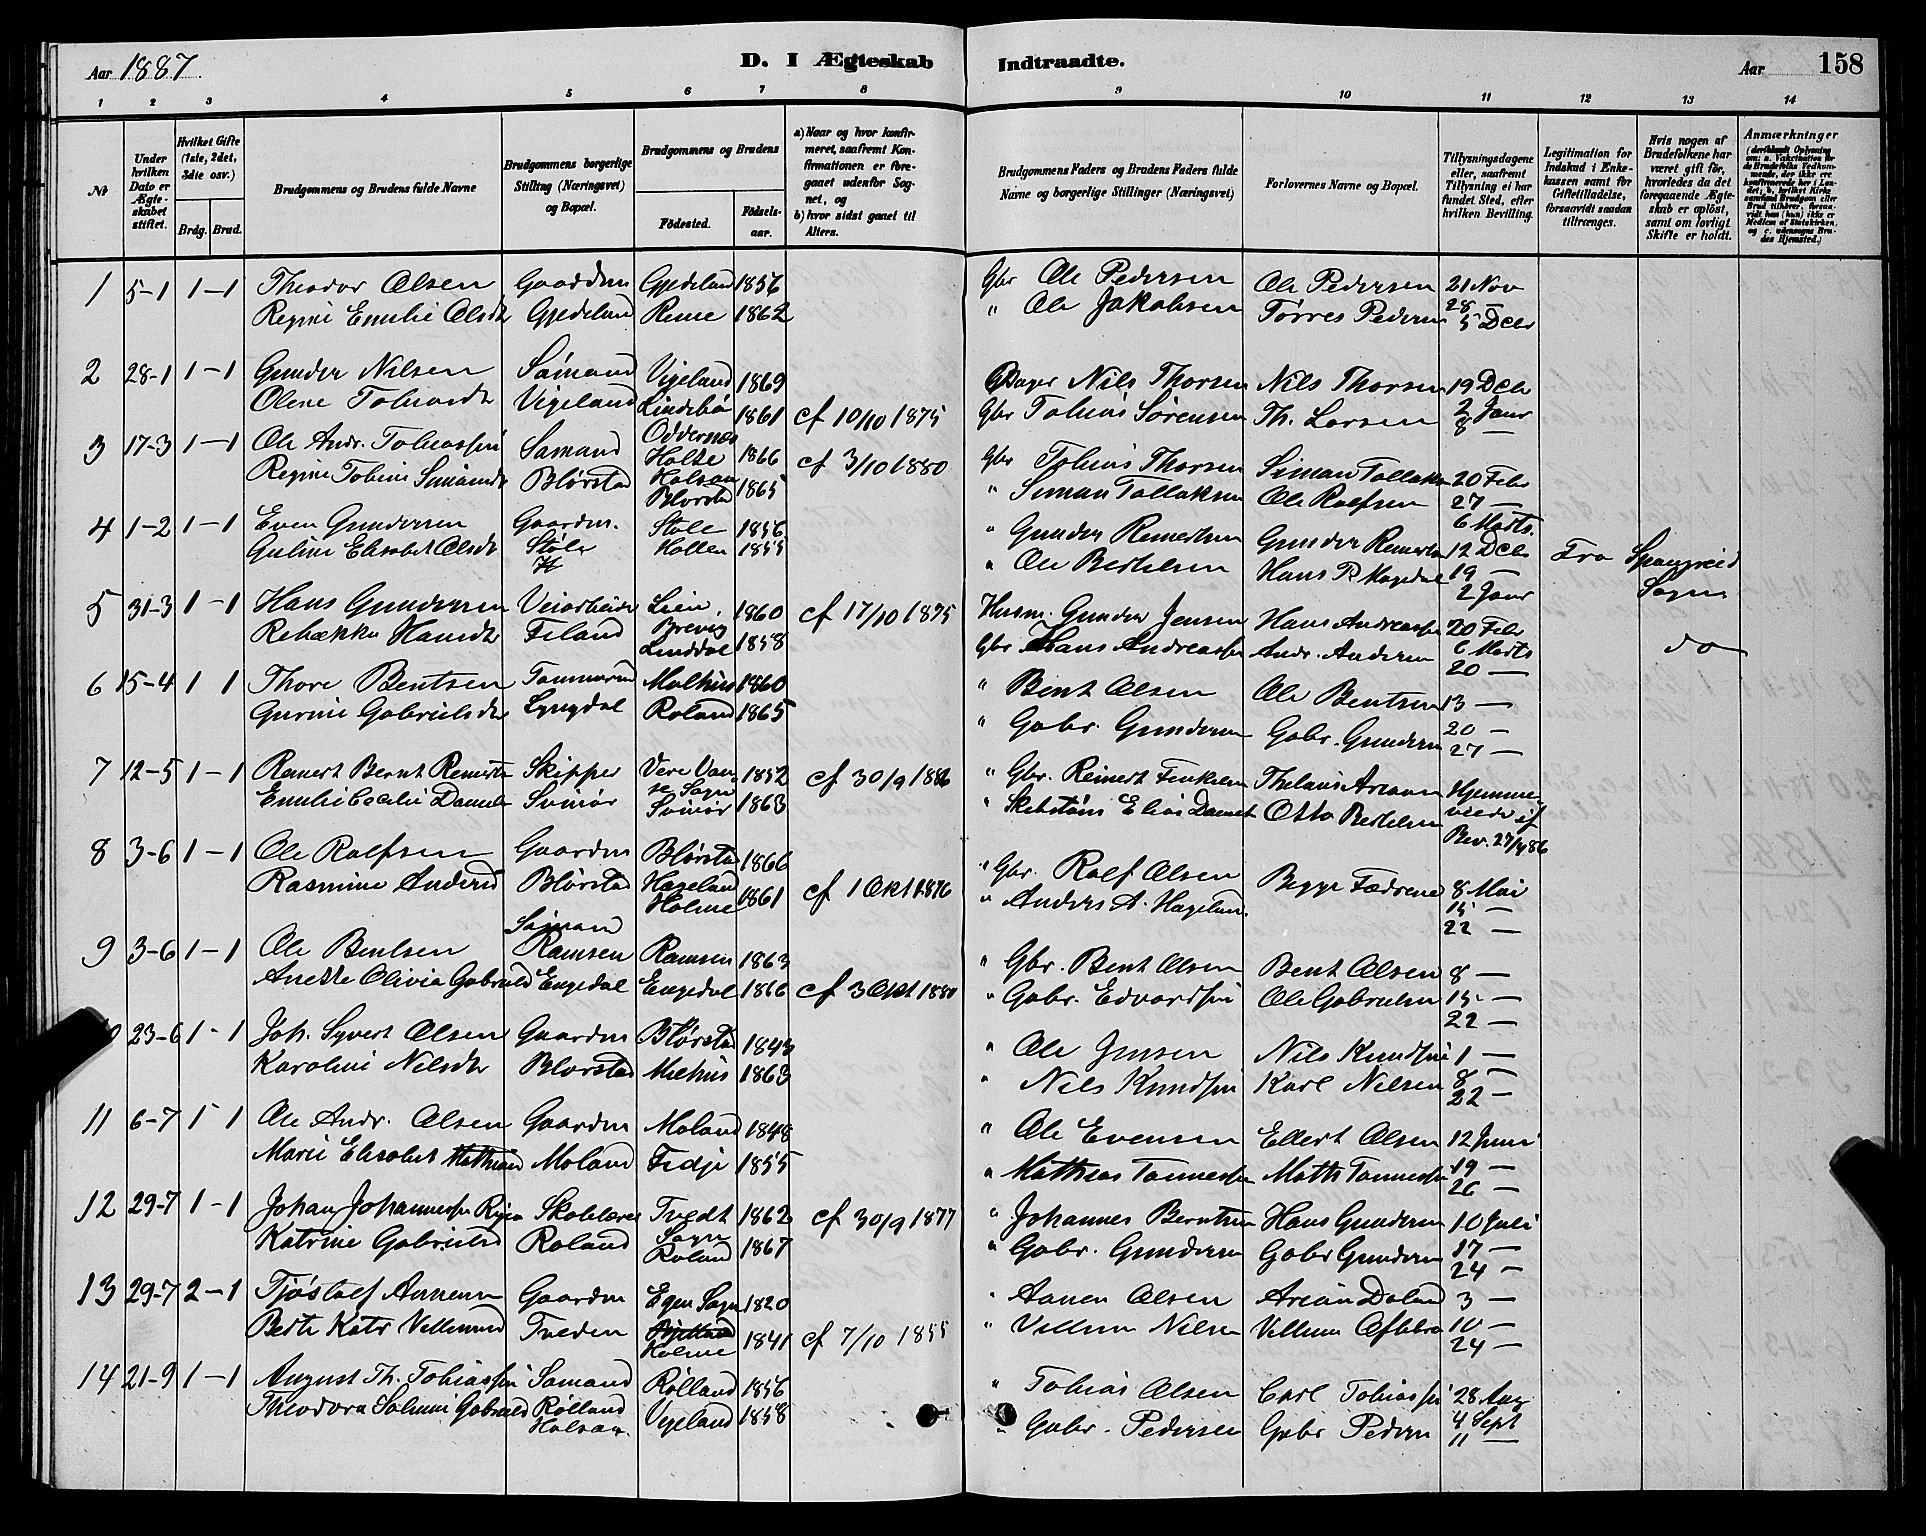 Aar 1887. D. I Ægteskab Indtraadte. Aar 158
1 2 3 4 5 6 7 8 9 10 11 12 13 14
№
Under hvilken Dato er Ægteskabet stiftet.
Hvilket Gifte (1ste, 2det, 3die osv.)
Brdg. Brud.
Brudgommens og Brudens fulde Navne
Brudgommens borgerlige Stilling (Næringsvei) og Bopæl.
Brudgommens og Brudens
Fødested. Fødselsaar.
a) Naar og hvor konfirmeret, saafremt Konfirmationen er foregaaet udenfor Sognet, og
b) hvor sidst gaaet til Alters.
Brudgommens Faders og Brudens Faders fulde Navne og borgerlige Stillinger (Næringsvei)
Forlovernes Navne og Bopæl.
Tillysningsdagene eller, saafremt Tillysning ei har fundet Sted, efter hvilken Bevilling.
Legitimation for Indskud i Enkekassen samt for Giftetilladelse, forsaavidt saadan tiltrænges.
Hvis nogen af Brudefolkene har været gift før, hvorledes da det foregaaende Ægteskab er opløst, samt om lovligt Skifte er holdt.
Anmærkninger
1 5-1 1-1 Theodor Olsen Gaardm Gjedeland 1856 Gbr Ole Pedersen Ole Pedersen 21 Nov
Regine Emilie Olsdt Gjedeland Reme 1862 " Ole Jakobsen Tørres Pedersen 28 – 5 Decbr
2 28-1 1-1 Gunder Nilsen Sømand Vigeland 1869 Nils Thorsen Nils Thorsen 19 Decbr
Olene Tobiasdt Vigeland Lindebø Oddernes 1861 cf 10/10 1875 Gbr Tobias Sørensen Th. Larsen 2 Janr 8 –
3 17-3 1-1 Ole Andr. Tobiassen Sømand Holte 1866 cf 3/10 1880 Gbr Tobias Thorsen Siman Tollaksen 20 Febr
Regine Tobine Simonsdt Blørstad Holsaa Blørstad 1865 " Siman Tollaksen Ole Rolfsen 27 – 6 Marts
4 1-2 1-1 Even Gundersen Gaardm. Støle 1856 " Gunder Remertsen Gunder Remertsen 12 Decbr Fra Spangreid Sogn
Guline Elisabet Olsdt Støle Hollen 1855 " Ole Bertelsen Hans P. 19 – 2 Janr
5 31-3 1-1 Hans Gundersen Veiarbeider Lien, Brevig 1860 cf 17/10 1875 Husm. Gunder Jensen Hans Andreassen 20 Febr do
Rebekka Hansdt Feland Linddal 1858 Gbr Hans Andreassen Andr. Andersen 6 Marts 20 –
6 15-4 1 1 Thore Bentsen Tømmermd Molhus 1860 " Bent Olsen Ole Bentsen 13 –
Gurine Gabrielsdt Lyngdal Roland 1865 " Gabr. Gundersen Gabr. Gundersen 20 – 27 –
7 12-5 1-1 Remert Bernt Remertsen Skipper Vere Vanse Sogn 1852 cf 30/9 1886 " Gbr. Reinert Hjemmeviede if
Emilie Cecilie Daniels Svinør Svinør 1863 " Elias Daniels Otto Bertelsen Bev. 27/4 86
8 3-6 1-1 Ole Rolfsen Gaardm Blørstad 1866 " Gbr. Rolf Olsen Begge Fædrene 8 Mai
Rasmine Andersd Blørstad Hageland Holme 1861 cf 1 Okt 1876 " Anders A. Hageland. 15 – 22 –
9 3-6 1-1 Ole Bentsen Sømand Ramsen Ramsen 1863 " Gbr. Bent Olsen Bent Olsen 8 –
Anette Olivia Gabrield Engedal Engedal 1866 cf 3 Okt 1880 " Gabr. Edvardsen Ole Gabrielsen 15 – 22 –
10 23-6 1-1 Joh. Syvert Olsen Gaardm Blørstad 1843 " Ole Jensen Nils Knudsen 1 –
Karoline Nilsdt Blørstad Miehus 1863 " Nils Knudsen Karl Nilsen 8 – 22 –
11 6-7 1 1 Ole Andr. Olsen Gaardm Moland 1848 " Ole Evensen Ellert Olsen 12 Juni
Marie Elisabet Mathiasd Moland Fedje 1855 " Mathias Tønnessen Maths Tønnessen 19 – 26 –
12 29-7 1-1 Johan Johannessen Skolelærer Tvedt Sogn 1862 cf 30/9 1877 " Johannes Berntsen Hans Gundersen 10 Juli
Katrine Gabrielsd Roland Roland 1867 " Gabr. Gundersen Gabr Gundersen 17 – 24 –
13 29-7 2-1 Tjøstolf Aanensen Gaardm Egen Sogn 1820 " Aanen Olsen Arian Daland 3 –
Berte Katr Villumsd Tveden Holme 1841 cf 7/10 1855 " Villum Nilsen Villum 10 – 24 –
14 21-9 1-1 August Th. Tobiassen Sømand Rølland 1856 " Tobias Olsen Carl Tobiassen 28 Aug
Theodora Salmine Gabrield Rølland Holsaa. Vigeland 1858 " Gabr. Pedersen Gabr Pedersen 4 Sept 11 –